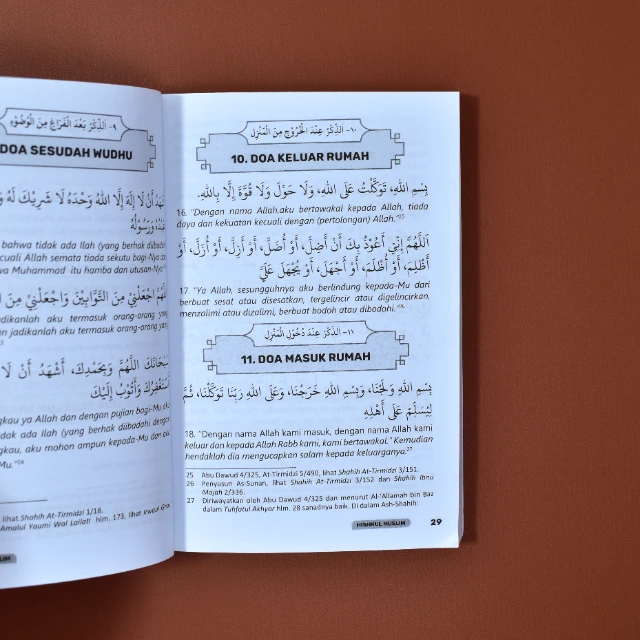 ٩- الذِّكْرُ بَعْدَ الْفَرَاغِ مِنَ الْوُضُوْءِ
DOA SESUDAH WUDHU
أَنْ لَا إِلَهَ إِلَّا اللهُ وَحْدَهُ لَا شَرِيْكَ لَهُ
عَبْدُهُ وَرَسُوْلُهُ
bahwa tidak ada Ilah (yang berhak dibadahi
cuali Allah semata tiada sekutu bagi-Nya
wa Muhammad itu hamba dan utusan-Nya."
اجْعَلْنِيْ مِنَ التَّوَّابِيْنَ وَاجْعَلْنِيْ مِنَ
adikanlah aku termasuk orang-orang
n jadikanlah aku termasuk orang-orang
سُبْحَانَكَ اللَّهُمَّ وَبِحَمْدِكَ، أَشْهَدُ أَنْ لَا
أَسْتَغْفِرُكَ وَأَتُوْبُ إِلَيْكَ
gkau ya Allah dan dengan pujian bagi-Mu
dak ada Ilah (yang berhak diibadahi dengan
ngkau, aku mohon ampun kepada-Mu dan
Mu."24
lihat Shahih At-Tirmidzi 1/18.
Amalul Yaumi Wal Lailati hlm. 173, lihat
١٠- الذِّكْرُ عِنْدَ الْخُرُوْجِ مِنَ الْمَنْزِلِ
10. DOA KELUAR RUMAH
بِسْمِ اللهِ، تَوَكَّلْتُ عَلَى اللهِ، وَلَا حَوْلَ وَلَا قُوَّةَ إِلَّا بِاللهِ.
16. "Dengan nama Allah,aku bertawakal kepada Allah, tiada
daya dan kekuatan kecuali dengan (pertolongan) Allah."25
اَللَّهُمَّ إِنِّي أَعُوْذُ بِكَ أَنْ أَضِلَّ، أَوْ أُضَلَّ، أَوْ أَزِلَّ، أَوْ أُزَلَّ، أَوْ
أَظْلِمَ، أَوْ أُظْلَمَ، أَوْ أَجْهَلَ، أَوْ يُجْهَلَ عَلَيَّ
17. "Ya Allah, sesungguhnya aku berlindung kepada-Mu dari
berbuat sesat atau disesatkan, tergelincir atau digelincirkan,
menzalimi atau dizalimi, berbuat bodoh atau dibodohi."26
١١- الذِّكْرُ عِنْدَ دُخُوْلِ الْمَنْزِلِ
11. DOA MASUK RUMAH
بِسْمِ اللهِ وَلَجْنَا، وَبِسْمِ اللهِ خَرَجْنَا، وَعَلَى اللهِ رَبِّنَا تَوَكَّلْنَا، ثُمَّ
لِيُسَلِّمْ عَلَى أَهْلِهِ
18. "Dengan nama Allah kami masuk, dengan nama Allah kami
keluar dan kepada Allah Rabb kami, kami bertawakul." Kemudian
hendaklah dia mengucapkan salam kepada keluarganya.27
25 Abu Dawud 4/325, At-Tirmidzi 5/490, lihat Shahih At-Tirmidzi 3/151.
26 Penyusun As-Sunan, lihat Shahih At-Tirmidzi 3/152 dan Shahih Ibnu
Majah 2/336.
27 Diriwayatkan oleh Abu Dawud 4/325 dan menurut Al-'Allamah bin Baz
dalam Tuhfatul Akhyar hlm. 28 sanadnya baik. Di dalam Ash-Shahih:
HISHNUL MUSLIM 29